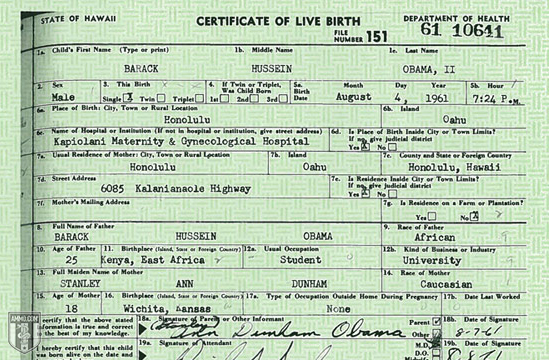 STATE OF HAWAII CERTIFICATE OF LIVE BIRTH DEPARTMENT OF HEALTH
FILE NUMBER 151 61 10641
1a. Child's First Name (Type or print) 1b. Middle Name 1c. Last Name
BARACK HUSSEIN OBAMA, II
2. Sex 3. This Birth 4. If Twin or Triplet, Was Child Born 5a. Birth Date Month Day Year 5b. Hour
Male Single X Twin Triplet 1st 2nd 3rd August 4, 1961 7:24 P.M.
6a. Place of Birth: City, Town or Rural Location 6b. Island
Honolulu Oahu
6c. Name of Hospital or Institution (If not in hospital or institution, give street address) 6d. Is Place of Birth Inside City or Town Limits? If no, give judicial district
Kapiolani Maternity & Gynecological Hospital Yes X No
7a. Usual Residence of Mother: City, Town or Rural Location 7b. Island 7c. County and State or Foreign Country
Honolulu Oahu Honolulu, Hawaii
7d. Street Address 7e. Is Residence Inside City or Town Limits? If no, give judicial district
6085 Kalanianaole Highway Yes X No
7f. Mother's Mailing Address 7g. Is Residence on a Farm or Plantation?
Yes No X
8. Full Name of Father 9. Race of Father
BARACK HUSSEIN OBAMA African
10. Age of Father 11. Birthplace (Island, State or Foreign Country) 12a. Usual Occupation 12b. Kind of Business or Industry
25 Kenya, East Africa Student University
13. Full Maiden Name of Mother 14. Race of Mother
STANLEY ANN DUNHAM Caucasian
15. Age of Mother 16. Birthplace (Island, State or Foreign Country) 17a. Type of Occupation Outside Home During Pregnancy 17b. Date Last Worked
18 Wichita, Kansas None
I certify that the above stated information is true and correct to the best of my knowledge. 18a. Signature of Parent or Other Informant Parent Other 18b. Date of Signature
(Stanley) Ann Dunham Obama 8-7-61
I hereby certify that this child was born alive on the date 19a. Signature of Attendant M.D. D.O. 19b. Date of Signature
AMMO.COM